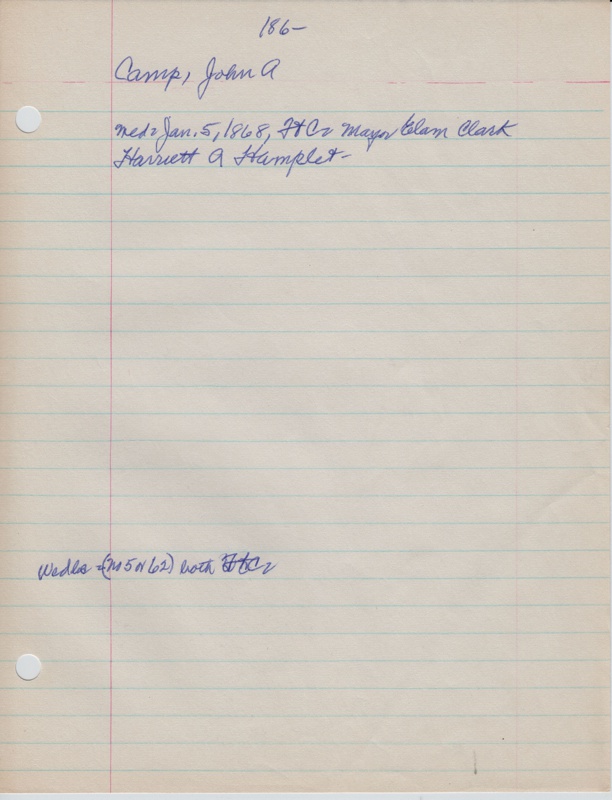 186-
Camp, John A
med Jan. 5, 1868, FtC, Mayor Elam Clark
Harriett A Hamplet-
(M5 62) both FtC